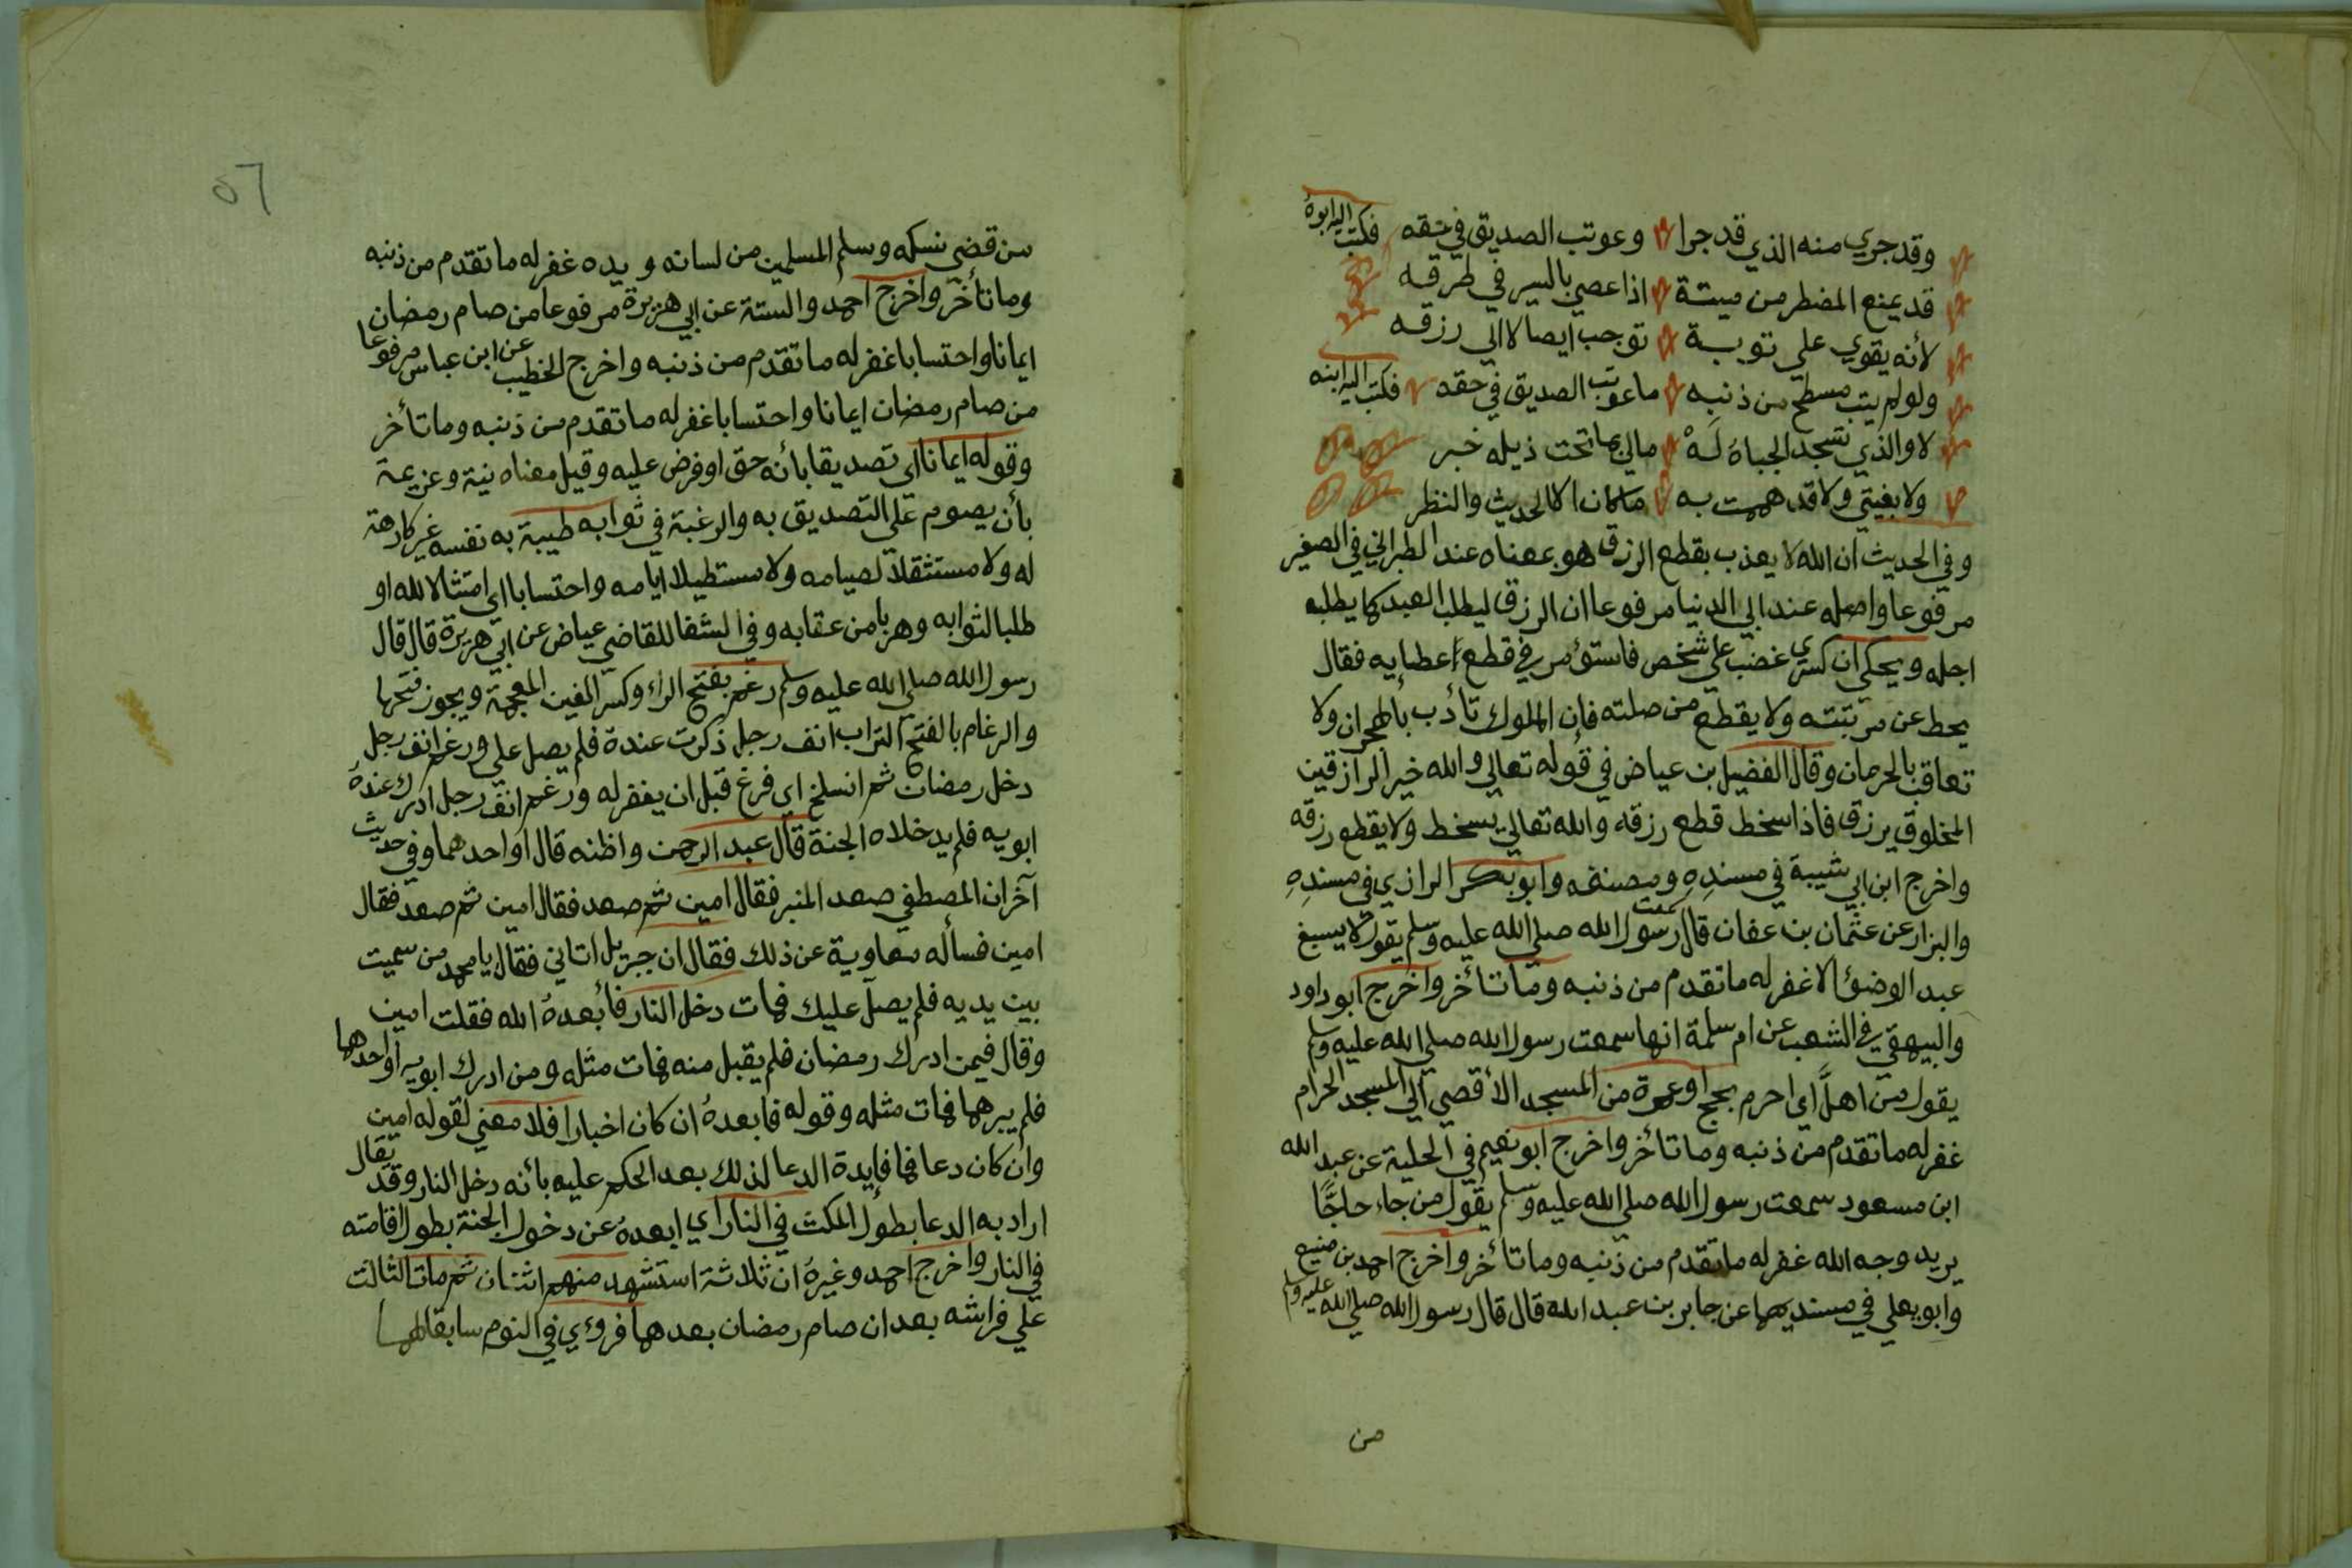 وقد جري منه الذي قد جرا وعوتب الصديق في حقه فكتب اليه ابوهُ
قد يمنع المضطر من ميتة اذا عصي بالسير في طرقه
لأنه يقوي علي توبة توجب ايصالا الي رزقه
ولو لم يتب مسطح من ذنبه ما عوتب الصديق في حقه فكتب اليه ابنه
لا والذي تسجد الجباهُ لَهْ مالي بما تحت ذيله خبر
ولا بفيتي ولا قد هممت به ما كان الا الحديث والنظر
وفي الحديث ان الله لا يعذب بقطع الرزق هو بمعناه عند الطبراني في الصغير
مرفوعا واصله عند ابي الدنيا مرفوعا ان الرزق ليطلب العبد كما يطلبه
اجله ويحكي ان كسري غضب علي شخص فاستؤمر في قطع أعطايه فقال
يحط عن مرتبته ولا يقطع من صلته فإن الملوك تأدب بالهجران ولا
تعاقب بالحرمان وقال الفضيل بن عياض في قوله تعالي والله خير الرازقين
المخلوق يرزق فاذا سخط قطع رزقه والله تعالي يسخط ولا يقطع رزقه
واخرج ابن ابي شيبة في مسندِهِ ومصنفه وابو بكر الرازي في مسندِهِ
والبزار عن عثمان بن عفان قال سمعت رسول الله صلي الله عليه وسلم يقول لا يسبغ
عبد الوضوُ الا غفر له ما تقدم من ذنبه وما تأخر واخرج ابو داود
والبيهقي في الشعب عن ام سلمة انها سمعت رسول الله صلي الله عليه وسلم
يقول من اهلَّ اي احرم بحج او عمرة من المسجد الأقصي الي المسجد الحرام
غفر له ما تقدم من ذنبه وما تأخر واخرج ابو نعيم في الحلية عن عبد الله
ابن مسعود سمعت رسول الله صلي الله عليه وسلم يقول من جاء حاجًّا
يريد وجه الله غفر له ما تقدم من ذنبه وما تأخر واخرج احمد بن منيع
وابو يعلي في مسنديهما عن جابر بن عبد الله قال قال رسول الله صلي الله عليه وسلم
من
٥٦
من قضي نسكه وسلم المسلمين من لسانه ويده غفر له ما تقدم من ذنبه
وما تأخر واخرج احمد والستة عن ابي هريرة مرفوعا من صام رمضان
ايمانا واحتسابا غفر له ما تقدم من ذنبه واخرج الخطيب عن ابن عباس مرفوعا
من صام رمضان ايمانا واحتسابا غفر له ما تقدم من ذنبه وما تأخر
وقوله ايمانا اي تصديقا بأنه حق او فرض عليه وقيل معناه نية وعزيمة
بأن يصوم علي التصديق به والرغبة في ثوابه طيبة به نفسه غير كارهة
له ولا مستثقلا لصيامه ولا مستطيلا ايامه واحتسابا اي امتثالا لله او
طلبا لثوابه وهربا من عقابه وفي الشفا للقاضي عياض عن ابي هريرة قال قال
رسول الله صلي الله عليه وسلم رغم بفتح الراء وكسر الغين المعجمة ويجوز فتحها
والرغام بالفتح التراب انف رجل ذكرت عنده فلم يصل علي ورغم انف رجل
دخل رمضان ثم انسلخ اي فرغ قبل ان يغفر له ورغم انف رجل ادرك عندهُ
ابويه فلم يدخلاه الجنة قال عبد الرحمن واظنه قال او احدهما وفي حديث
آخر ان المصطفي صعد المنبر فقال امين ثم صعد فقال امين ثم صعد فقال
امين فسأله معاوية عن ذلك فقال ان جبريل اتاني فقال يا محمد من سميت
بين يديه فلم يصل عليك فمات دخل النار فأبعدهُ الله فقلت امين
وقال فيمن ادرك رمضان فلم يقبل منه فمات مثله ومن ادرك ابويه او احدهما
فلم يبرهما فمات مثله وقوله فابعدهُ ان كان اخبارا فلا معني لقوله امين
وان كان دعا فما فايدة الدعا لذلك بعد الحكم عليه بأنه دخل النار وقد يقال
اراد به الدعا بطول المكث في النار اي ابعدهُ عن دخول الجنة بطول اقامته
في النار واخرج احمد وغيرهُ ان ثلاثة استشهد منهم اثنان ثم مات الثالث
علي فراشه بعد ان صام رمضان بعدهما فروءي في النوم سابقا لهما